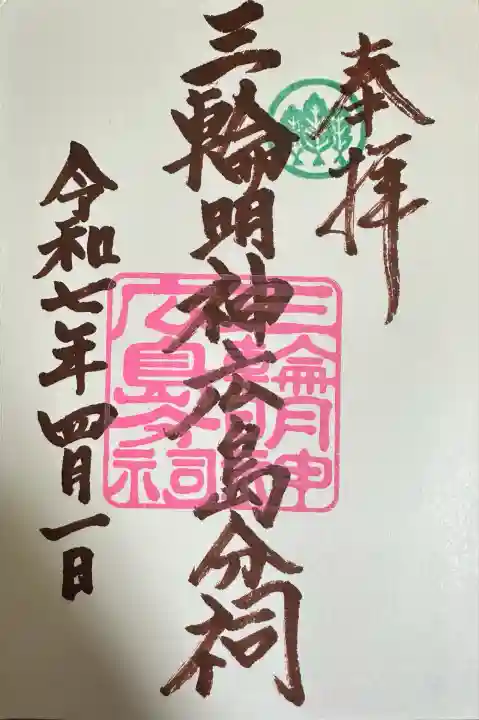 奉拝
三輪明神広島分祠
令和七年四月一日
三輪明神
広島分祠